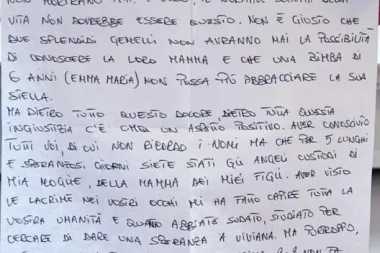 VITA NON DOVREBBE ESSERE QUESTO. NON È GIUSTO CHE
DUE SPLENDIDI GEMELLI NON AVRANNO MAI LA POSSIBILITÀ
DI CONOSCERE LA LORO MAMMA E CHE UNA BIMBA DI
6 ANNI (EMMA MARIA) NON POSSA PIÙ ABBRACCIARE LA SUA
STELLA.
MA DIETRO TUTTO QUESTO DOLORE, DIETRO TUTTA QUESTA
INGIUSTIZIA C'È UN ASPETTO POSITIVO. AVER CONOSCIUTO
TUTTI VOI, DI CUI NON RICORDO I NOMI MA CHE PER 5 LUNGHI
E SPERANZOSI GIORNI SIETE STATI GLI ANGELI CUSTODI DI
MIA MOGLIE, DELLA MAMMA DEI MIEI FIGLI. AVER VISTO
LE LACRIME NEI VOSTRI OCCHI MI HA FATTO CAPIRE TUTTA LA
VOSTRA UMANITÀ E QUANTO ABBIATE SUDATO, STUDIATO PER
CERCARE DI DARE UNA SPERANZA A VIVIANA. MA PURTROPPO,